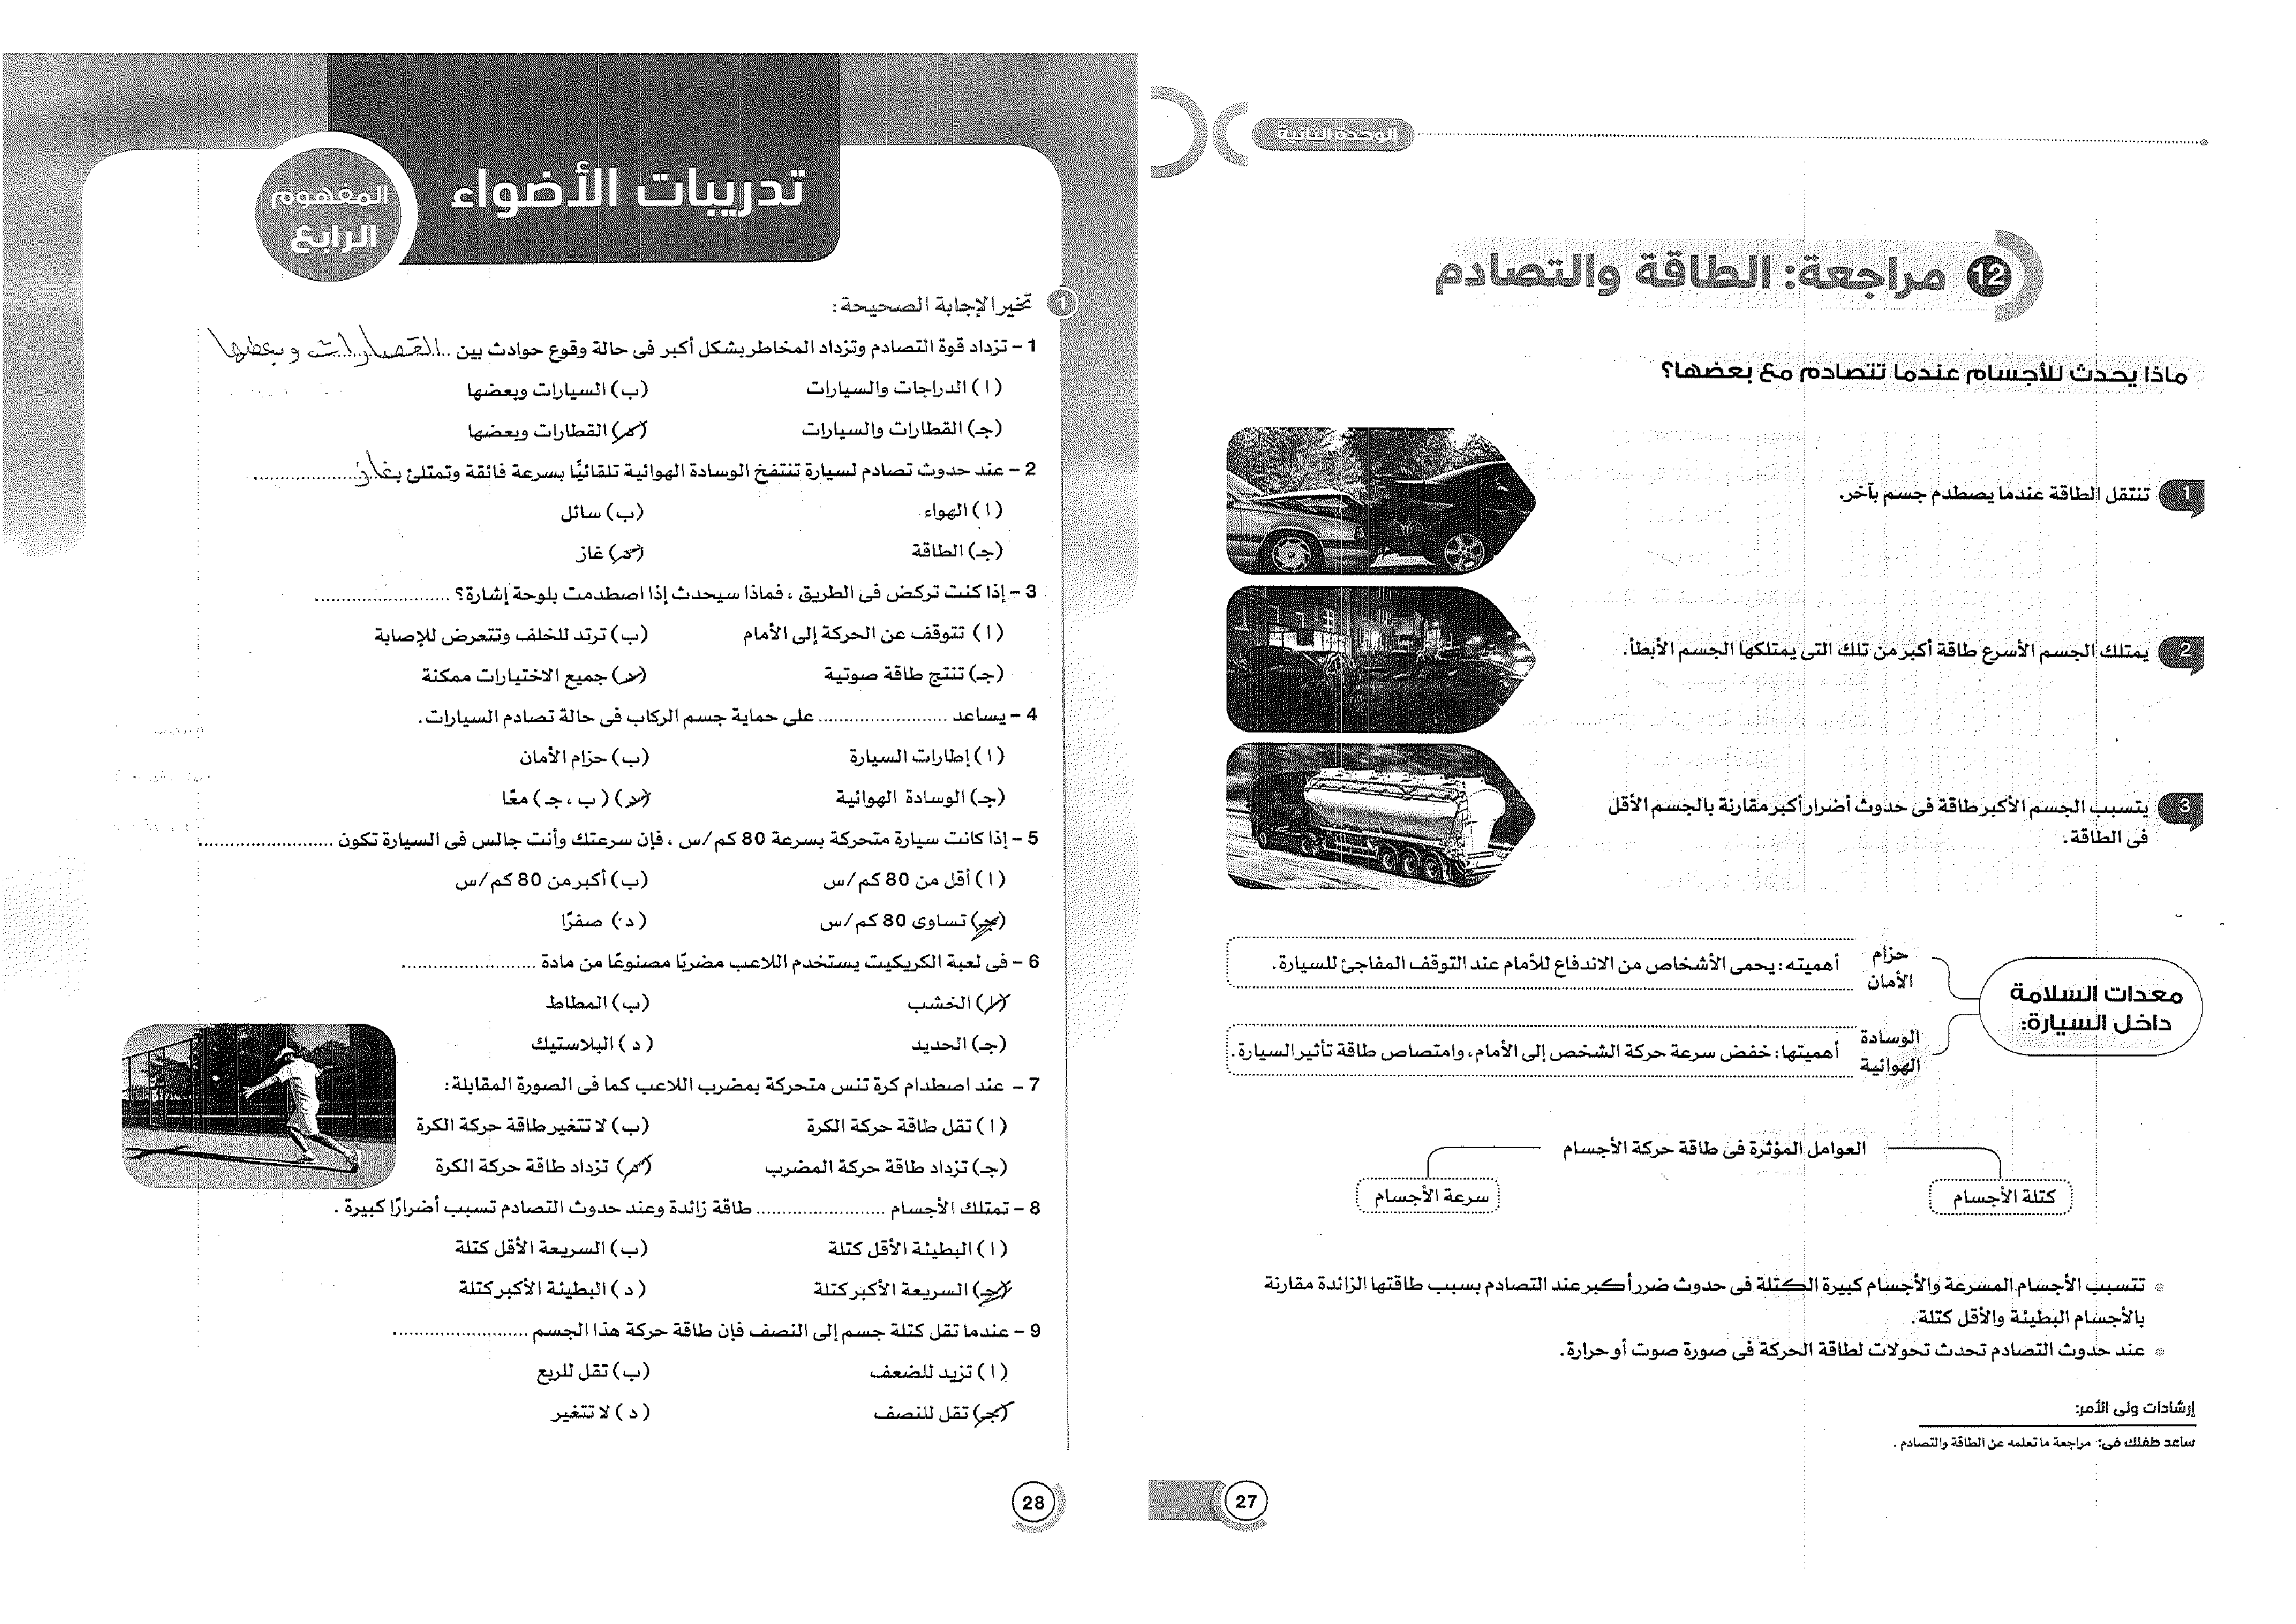 الوحدة الثانية
12 مراجعة: الطاقة والتصادم
ماذا يحدث للأجسام عندما تتصادم مع بعضها؟
1 تنتقل الطاقة عندما يصطدم جسم بآخر.
2 يمتلك الجسم الأسرع طاقة أكبر من تلك التى يمتلكها الجسم الأبطأ.
3 يتسبب الجسم الأكبر طاقة فى حدوث أضرار أكبر مقارنة بالجسم الأقل
فى الطاقة.
معدات السلامة
داخل السيارة:
حزام
الأمان
أهميته: يحمى الأشخاص من الاندفاع للأمام عند التوقف المفاجئ للسيارة.
الوسادة
الهوائية
أهميتها: خفض سرعة حركة الشخص إلى الأمام، وامتصاص طاقة تأثير السيارة.
العوامل المؤثرة فى طاقة حركة الأجسام
كتلة الأجسام
سرعة الأجسام
تتسبب الأجسام المسرعة والأجسام كبيرة الكتلة فى حدوث ضرر أكبر عند التصادم بسبب طاقتها الزائدة مقارنة
بالأجسام البطيئة والأقل كتلة.
عند حدوث التصادم تحدث تحولات لطاقة الحركة فى صورة صوت أو حرارة.
إرشادات ولى الأمر:
ساعد طفلك فى: مراجعة ما تعلمه عن الطاقة والتصادم.
27
تدريبات الأضواء
المفهوم
الرابع
1 تخير الإجابة الصحيحة:
1 - تزداد قوة التصادم وتزداد المخاطر بشكل أكبر فى حالة وقوع حوادث بين القطارات وبعضها
(ا) الدراجات والسيارات (ب) السيارات وبعضها
(جـ) القطارات والسيارات (د) القطارات وبعضها
2 - عند حدوث تصادم لسيارة تنتفخ الوسادة الهوائية تلقائيًا بسرعة فائقة وتمتلئ بغاز ......................
(ا) الهواء (ب) سائل
(جـ) الطاقة (د) غاز
3 - إذا كنت تركض فى الطريق، فماذا سيحدث إذا اصطدمت بلوحة إشارة؟ ......................
(ا) تتوقف عن الحركة إلى الأمام (ب) ترتد للخلف وتتعرض للإصابة
(جـ) تنتج طاقة صوتية (د) جميع الاختيارات ممكنة
4 - يساعد ...................... على حماية جسم الركاب فى حالة تصادم السيارات.
(ا) إطارات السيارة (ب) حزام الأمان
(جـ) الوسادة الهوائية (د) (ب، جـ) معًا
5 - إذا كانت سيارة متحركة بسرعة 80 كم/س، فإن سرعتك وأنت جالس فى السيارة تكون ......................
(ا) أقل من 80 كم/س (ب) أكبر من 80 كم/س
(جـ) تساوى 80 كم/س (د) صفرًا
6 - فى لعبة الكريكيت يستخدم اللاعب مضربًا مصنوعًا من مادة ......................
(ا) الخشب (ب) المطاط
(جـ) الحديد (د) البلاستيك
7 - عند اصطدام كرة تنس متحركة بمضرب اللاعب كما فى الصورة المقابلة:
(ا) تقل طاقة حركة الكرة (ب) لا تتغير طاقة حركة الكرة
(جـ) تزداد طاقة حركة المضرب (د) تزداد طاقة حركة الكرة
8 - تمتلك الأجسام ...................... طاقة زائدة وعند حدوث التصادم تسبب أضرارًا كبيرة.
(ا) البطيئة الأقل كتلة (ب) السريعة الأقل كتلة
(جـ) السريعة الأكبر كتلة (د) البطيئة الأكبر كتلة
9 - عندما تقل كتلة جسم إلى النصف فإن طاقة حركة هذا الجسم ......................
(ا) تزيد للضعف (ب) تقل للربع
(جـ) تقل للنصف (د) لا تتغير
28